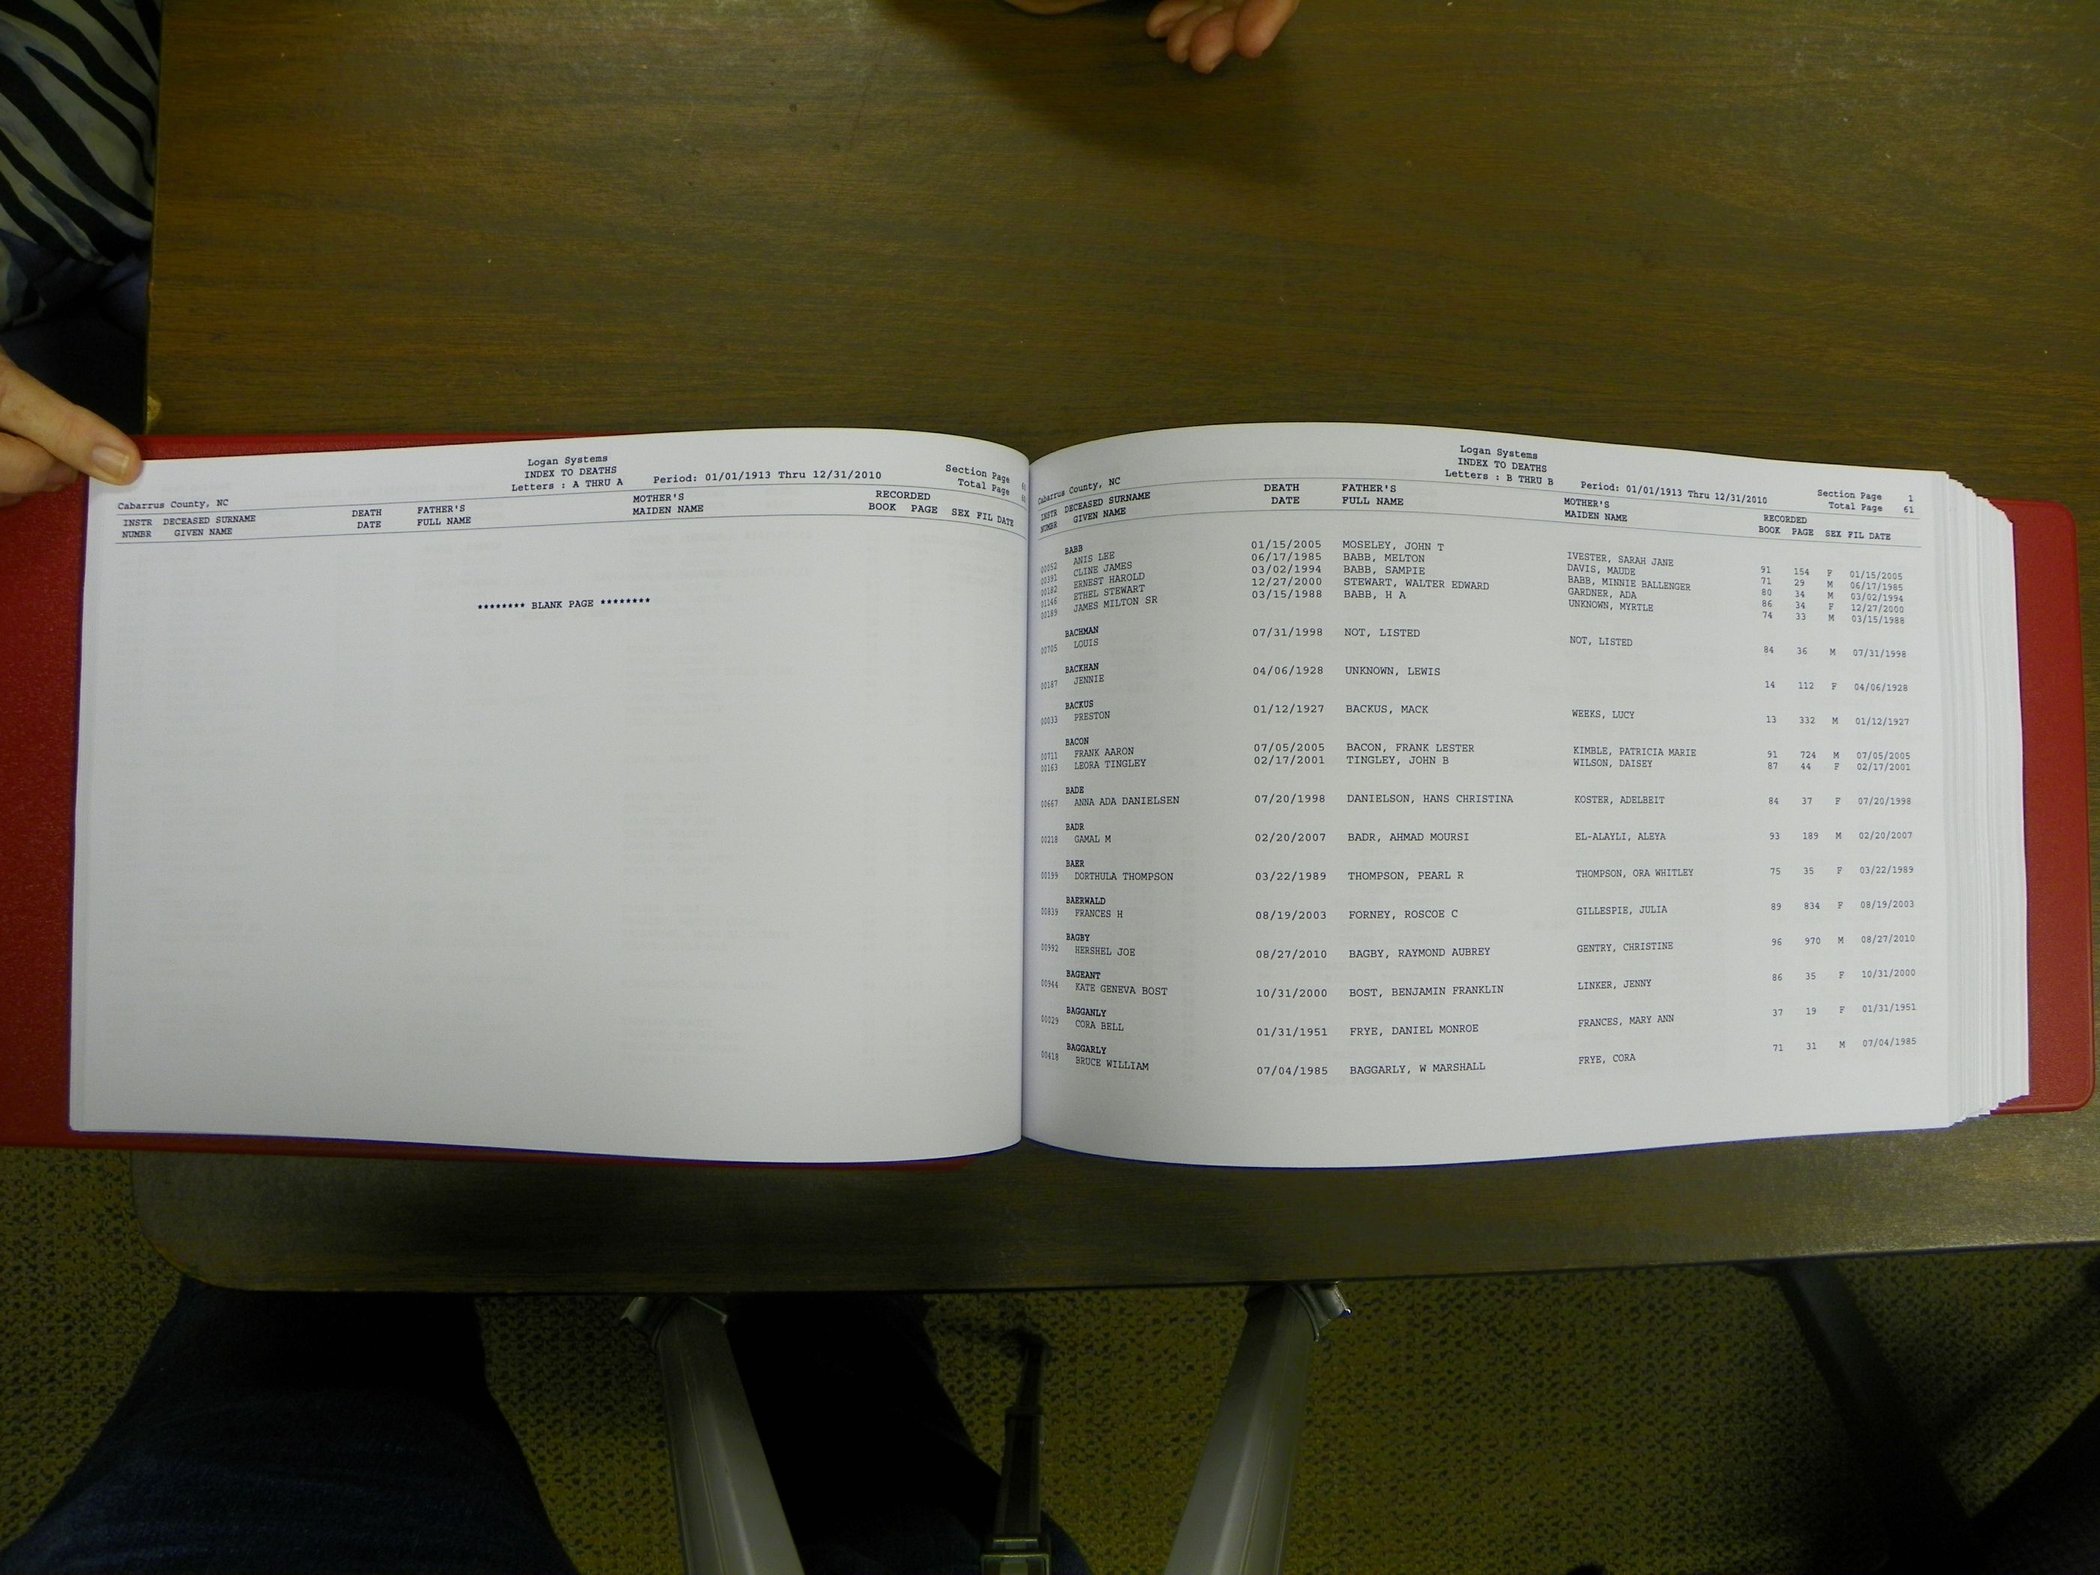 Logan Systems
INDEX TO DEATHS
Letters : A THRU A Period: 01/01/1913 Thru 12/31/2010 Section Page
Cabarrus County, NC Total Page
INSTR DECEASED SURNAME DEATH FATHER'S MOTHER'S RECORDED
NUMBR GIVEN NAME DATE FULL NAME MAIDEN NAME BOOK PAGE SEX FIL DATE
******** BLANK PAGE ********
Logan Systems
INDEX TO DEATHS
Letters : B THRU B Period: 01/01/1913 Thru 12/31/2010 Section Page 1
Cabarrus County, NC Total Page 61
INSTR DECEASED SURNAME DEATH FATHER'S MOTHER'S RECORDED
NUMBR GIVEN NAME DATE FULL NAME MAIDEN NAME BOOK PAGE SEX FIL DATE
BABB
00052 ANIS LEE 01/15/2005 MOSELEY, JOHN T IVESTER, SARAH JANE 91 154 F 01/15/2005
00391 CLINE JAMES 06/17/1985 BABB, MELTON DAVIS, MAUDE 71 29 M 06/17/1985
00182 ERNEST HAROLD 03/02/1994 BABB, SAMPIE BABB, MINNIE BALLENGER 80 34 M 03/02/1994
01146 ETHEL STEWART 12/27/2000 STEWART, WALTER EDWARD GARDNER, ADA 86 34 F 12/27/2000
00189 JAMES MILTON SR 03/15/1988 BABB, H A UNKNOWN, MYRTLE 74 33 M 03/15/1988
BACHMAN
00705 LOUIS 07/31/1998 NOT, LISTED NOT, LISTED 84 36 M 07/31/1998
BACKHAN
00187 JENNIE 04/06/1928 UNKNOWN, LEWIS 14 112 F 04/06/1928
BACKUS
00033 PRESTON 01/12/1927 BACKUS, MACK WEEKS, LUCY 13 332 M 01/12/1927
BACON
00711 FRANK AARON 07/05/2005 BACON, FRANK LESTER KIMBLE, PATRICIA MARIE 91 724 M 07/05/2005
00163 LEORA TINGLEY 02/17/2001 TINGLEY, JOHN B WILSON, DAISEY 87 44 F 02/17/2001
BADE
00667 ANNA ADA DANIELSEN 07/20/1998 DANIELSON, HANS CHRISTINA KOSTER, ADELBEIT 84 37 F 07/20/1998
BADR
00218 GAMAL M 02/20/2007 BADR, AHMAD MOURSI EL-ALAYLI, ALEYA 93 189 M 02/20/2007
BAER
00199 DORTHULA THOMPSON 03/22/1989 THOMPSON, PEARL R THOMPSON, ORA WHITLEY 75 35 F 03/22/1989
BAERWALD
00839 FRANCES H 08/19/2003 FORNEY, ROSCOE C GILLESPIE, JULIA 89 834 F 08/19/2003
BAGBY
00992 HERSHEL JOE 08/27/2010 BAGBY, RAYMOND AUBREY GENTRY, CHRISTINE 96 970 M 08/27/2010
BAGEANT
00944 KATE GENEVA BOST 10/31/2000 BOST, BENJAMIN FRANKLIN LINKER, JENNY 86 35 F 10/31/2000
BAGGANLY
00029 CORA BELL 01/31/1951 FRYE, DANIEL MONROE FRANCES, MARY ANN 37 19 F 01/31/1951
BAGGARLY
00418 BRUCE WILLIAM 07/04/1985 BAGGARLY, W MARSHALL FRYE, CORA 71 31 M 07/04/1985